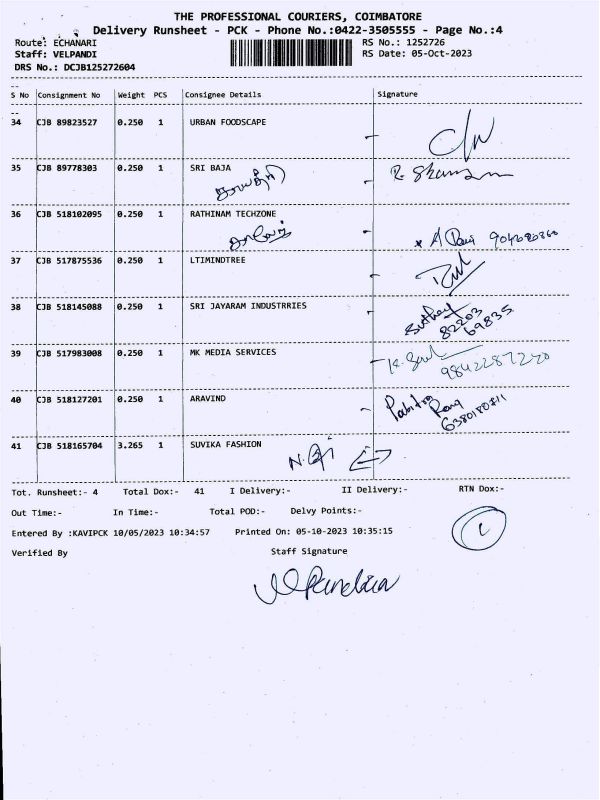 THE PROFESSIONAL COURIERS, COIMBATORE
Delivery Runsheet - PCK - Phone No.:0422-3505555 - Page No.:4
Route: ECHANARI RS No.: 1252726
Staff: VELPANDI RS Date: 05-Oct-2023
DRS No.: DCJB125272604
S No Consignment No Weight PCS Consignee Details Signature
34 CJB 89823527 0.250 1 URBAN FOODSCAPE
35 CJB 89778303 0.250 1 SRI BAJA
36 CJB 518102095 0.250 1 RATHINAM TECHZONE
37 CJB 517875536 0.250 1 LTIMINDTREE
38 CJB 518145088 0.250 1 SRI JAYARAM INDUSTRRIES
82203
69835
39 CJB 517983008 0.250 1 MK MEDIA SERVICES
40 CJB 518127201 0.250 1 ARAVIND
41 CJB 518165704 3.265 1 SUVIKA FASHION
Tot. Runsheet:- 4 Total Dox:- 41 I Delivery:- II Delivery:- RTN Dox:-
Out Time:- In Time:- Total POD:- Delvy Points:-
Entered By :KAVIPCK 10/05/2023 10:34:57 Printed On: 05-10-2023 10:35:15
Verified By Staff Signature